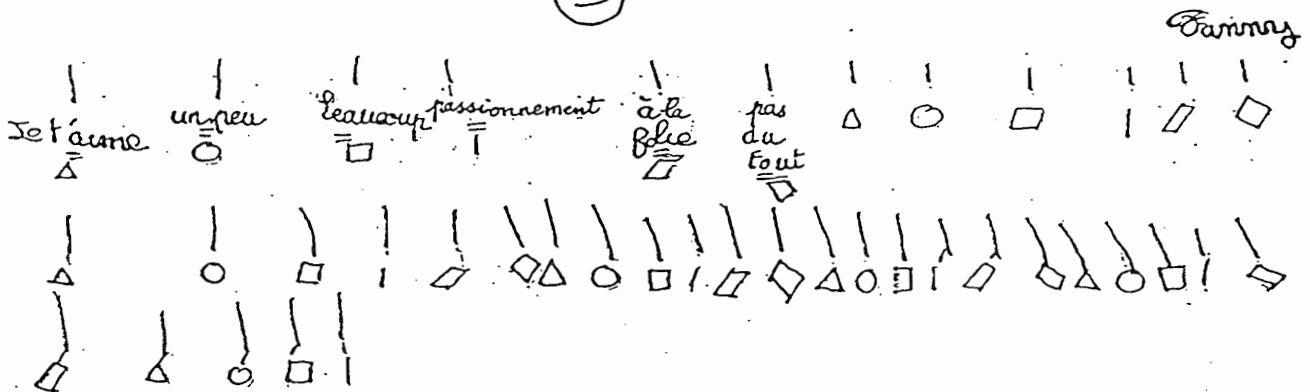 Fanny
Je t'aime un peu beaucoup passionnement à la folie pas du tout